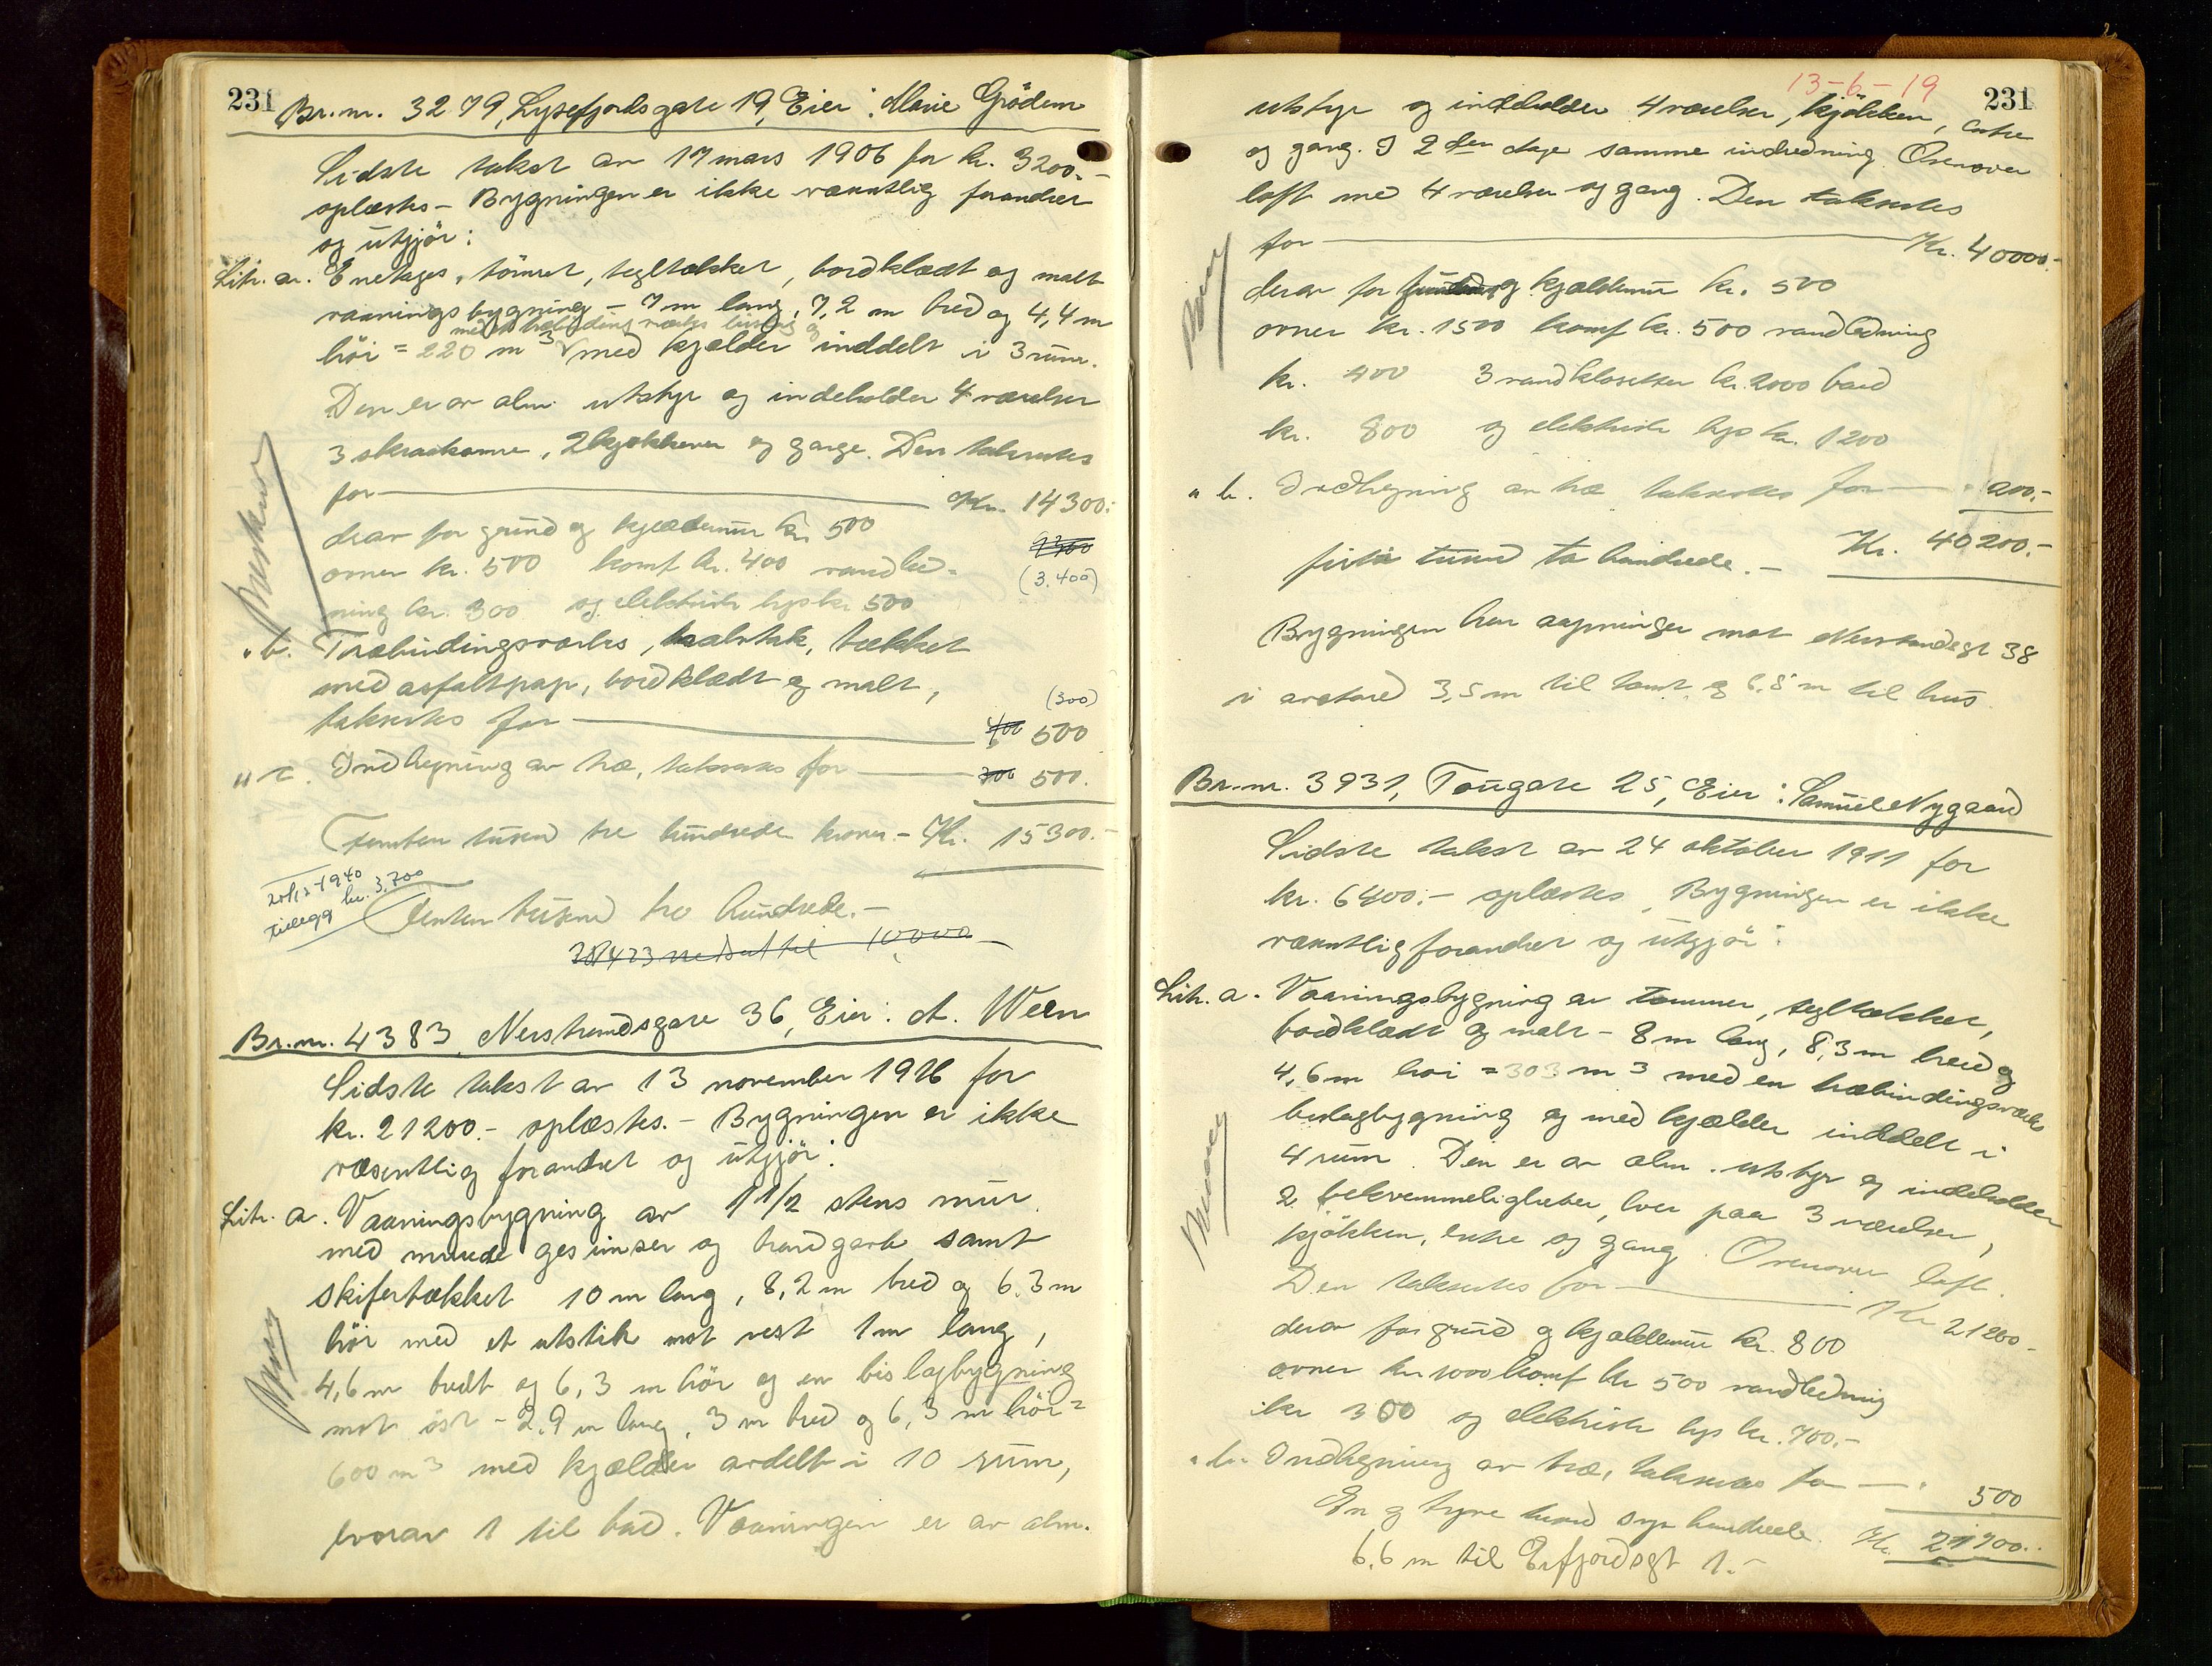 231
Br.nr. 3279, Lysefjordsgate 19, Eier: Marie Grödem
Sidste takst av 17 mars 1906 for kr. 3200.-
oplæstes - Bygningen er ikke væsentlig forandret
og utgjör:
Litr. a. Enetages, tömret, tegltækket, bordklædt og malt
vaaningsbygning - 7 m lang, 7,2 m bred og 4,4 m
med
höi = 220 m3 med kjælder inddelt i 3 rum.
Den er av alm. utstyr og indeholder 4 værelser
3 skraakamre, 2 kjøkkener og gange. Den takseres
for Kr. 14300.-
derav for grund og kjældermur kr. 500
ovner kr. 500 komf kr. 400 vandled-
(3.400)
ning kr. 300 og elektrisk lys kr. 500
" b. Træbindingsverks, halvtak, tækket
med asfaltpap, bordklædt og malt,
(300)
takseres for 400 500
" c. Indhegning av træ, takseres for 300 500.
Femten tusen tre hundrede kroner - Kr. 15300.-
20/12-1940
tillegg kr. 3.700
Femten tusend tre hundrede.-
28/4 23 nedsat til 10000
Br.nr. 4383, Nerstrandsgate 36, Eier: A.Ween
Sidste takst av 13 november 1916 for
kr. 21200.- oplæstes. - Bygningen er ikke
væsentlig forandret og utgjör:
Litr. a. Vaaningsbygning av 1 1/2 stens mur
med murede gesimser og brandgavle samt
skifertækket 10 m lang, 8,2 m bred og 6,3 m
höi med et utstik mot vest 1 m lang,
4,6 m bredt og 6,3 m höi og en bislagbygning
mot öst - 2,9 m lang, 3 m bred og 6,3 m höi =
600 m3 med kjælder avdelt i 10 rum,
hvorav 1 til bad. Vaaningen er av alm.
13-6-19
231
utstyr og indeholder 4 værelser, kjökken, entre
og gang. I 2den etage samme indredning. Ovenover
loft med 4 værelser og gang. Den takseres
for Kr. 40000.-
derav for grund og kjældermur kr. 500
ovner kr. 1500 komf kr. 500 vandledning
kr. 400 3 vandklosetter kr. 2000 bad
kr. 800 og elektrisk lys kr. 1200
" b. Indhegning av træ takseres for " 200.-
firti tusend to hundrede.- Kr. 40200.-
Bygningen har aapninger mot Nerstrandsgt 38
i avstand 3,5 m til tomt og 6,8 m til hus
Br.nr. 3931, Tougate 25, Eier: Samuel Nygaard
Sidste takst av 24 oktober 1911 for
kr. 6400.- oplæstes. Bygningen er ikke
væsentlig forandret og utgjör:
Litr. a. Vaaningsbygning av tømmer, tegltækket,
bordklædt og malt - 8 m lang, 8,3 m bred og
4,6 m höi = 303 m3 med en træbindingsverks
bislagbygning og med kjælder inddelt i
4 rum. Den er av alm. utstyr og indeholder
2 bekvemmeligheter, hver paa 3 værelser,
kjökken, entre og gang. Ovenover loft.
Den takseres for Kr 21200.-
derav for grund og kjældermur kr. 800
ovner kr. 1000 komf kr 500 vandledning
kr 300 og elektrisk lys kr. 700.-
" b. Indhegning av træ, takseres for " 500
En og tyve tusend syv hundrede. Kr. 21700.-
6,6 m til Erfjordsgt 1.-